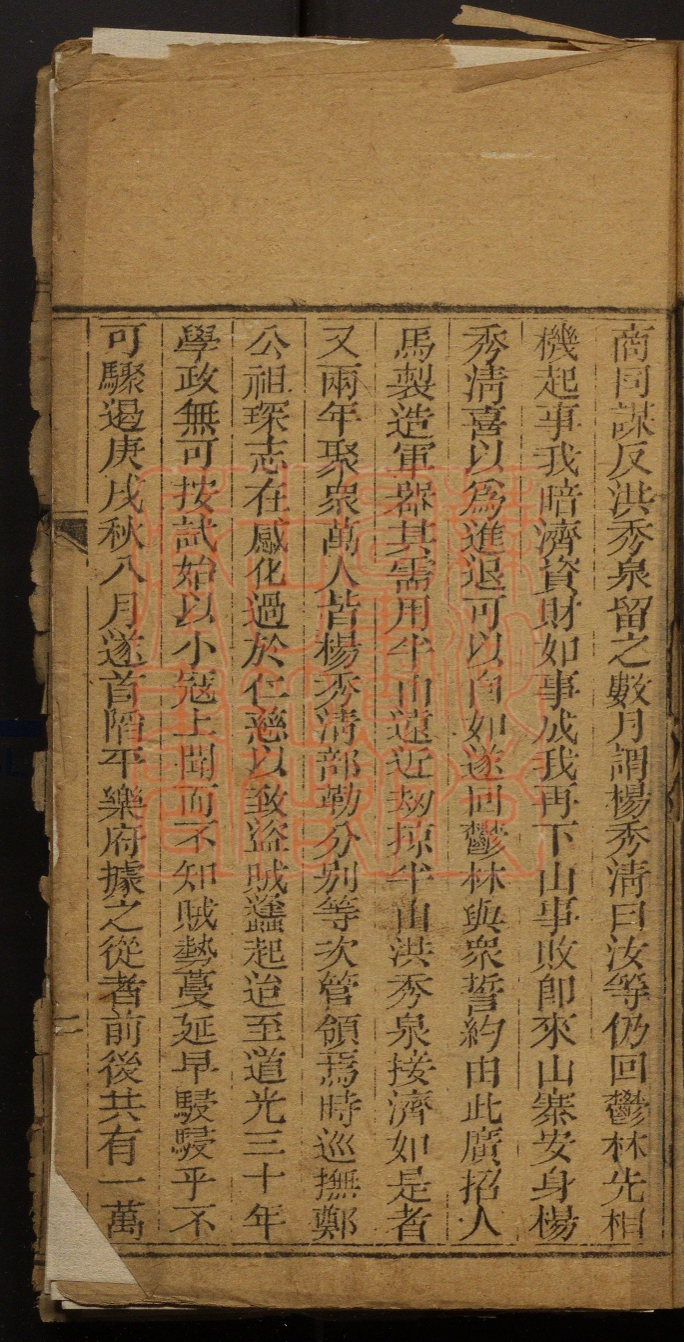 商同謀反洪秀泉留之數月謂楊秀清曰汝等仍回鬱林先相
機起事我暗濟資財如事成我再下山事敗卽來山寨安身楊
秀清喜以爲進退可以自如遂回鬱林與衆誓約由此廣招人
馬製造軍器其需用半由遠近刼掠半由洪秀泉接濟如是者
又兩年聚衆萬人皆楊秀清部勒分别等次管領焉時巡撫鄭
公祖琛志在感化過於仁慈以致盜賊蠭起迨至道光三十年
學政無可按試始以小寇上聞而不知賊勢蔓延早駸駸乎不
可驟遏庚戌秋八月遂首陷平樂府據之從者前後共有一萬
二